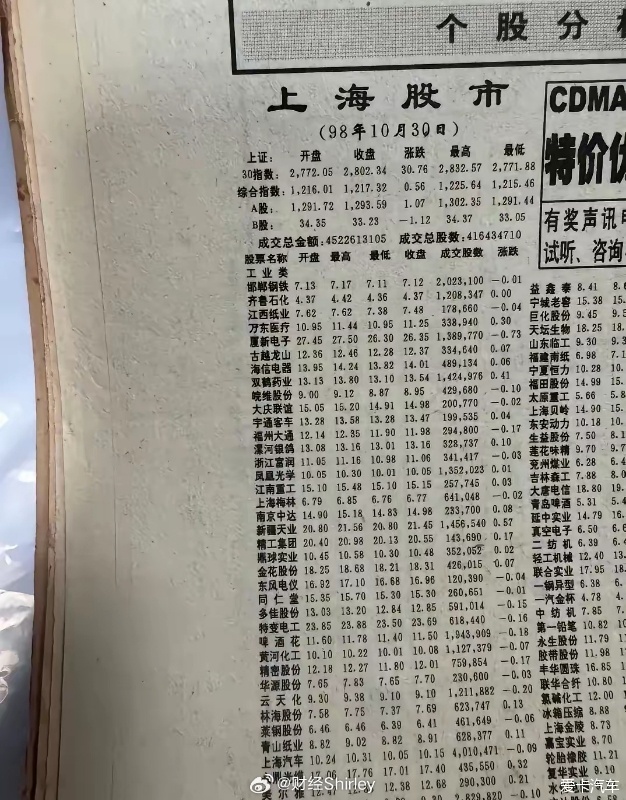 个股分
上海股市
(98年10月30日)
上证: 开盘 收盘 涨跌 最高 最低
30指数: 2,772.05 2,802.34 30.76 2,832.57 2,771.88
综合指数: 1,216.01 1,217.32 0.56 1,225.64 1,215.46
A股: 1,291.72 1,293.59 1.07 1,302.35 1,291.44
B股: 34.35 33.23 -1.12 34.37 33.05
成交总金额:4522613105 成交总股数:416434710
股票名称 开盘 最高 最低 收盘 成交股数 涨跌
工业类
邯郸钢铁 7.13 7.17 7.11 7.12 2,023,100 -0.01
齐鲁石化 4.37 4.42 4.36 4.37 1,208,347 0.00
江西纸业 7.62 7.62 7.38 7.48 178,660 -0.04
万东医疗 10.95 11.44 10.95 11.25 338,940 0.30
厦新电子 27.45 27.50 26.30 26.35 1,389,770 -0.73
古越龙山 12.36 12.46 12.28 12.37 334,640 0.07
海信电器 13.95 14.24 13.82 14.01 489,134 0.06
双鹤药业 13.13 13.80 13.10 13.54 1,424,976 0.41
皖维股份 9.00 9.12 8.87 8.95 429,680 -0.10
大庆联谊 15.05 15.20 14.91 14.98 200,770 -0.02
宇通客车 13.28 13.58 13.28 13.47 199,535 0.04
福州大通 12.14 12.35 11.90 11.98 294,800 -0.17
漯河银鸽 13.08 13.16 13.01 13.16 328,737 0.10
浙江富润 11.05 11.16 10.98 11.06 341,417 -0.03
凤凰光学 10.05 10.30 10.01 10.05 1,352,023 0.01
江南重工 15.10 15.48 15.10 15.15 257,745 0.03
上海梅林 6.79 6.85 6.76 6.77 641,048 -0.02
南京中达 14.90 15.18 14.83 14.98 233,700 0.08
新疆天业 20.80 21.56 20.80 21.45 1,456,540 0.57
精工集团 20.40 20.98 20.13 20.55 143,690 0.17
鼎球实业 10.45 10.58 10.30 10.48 352,052 0.02
金花股份 18.25 18.68 18.21 18.31 426,015 0.07
东风电仪 16.92 17.10 16.68 16.96 120,390 -0.04
同仁堂 15.35 15.70 15.30 15.30 260,651 -0.01
多佳股份 13.03 13.20 12.84 12.85 591,014 -0.15
特变电工 23.85 23.88 23.50 23.69 618,440 -0.16
啤酒花 11.60 11.78 11.40 11.50 1,943,909 -0.18
黄河化工 10.10 10.22 10.01 10.08 1,127,379 -0.07
精密股份 12.18 12.27 11.80 12.01 759,854 -0.17
华源股份 7.65 7.83 7.65 7.70 230,600 -0.03
云天化 9.30 9.38 9.10 9.10 1,211,882 -0.20
林海股份 7.58 7.75 7.37 7.69 623,747 0.13
莱钢股份 6.46 6.46 6.39 6.41 461,649 -0.06
青山纸业 8.82 9.02 8.82 8.91 628,377 0.11
上海汽车 10.24 10.31 10.05 10.15 4,010,471 -0.09
17.76 17.01 17.40 435,550 0.32
12.38 12.68 290,300 0.21
2,829,820 -0.10
益鑫泰 8.41
宁城老窖 15.38
巨化股份 9.45
天坛生物 18.25
山东临工 9.30
福建南纸 6.98
宁夏恒力 10.28
福田股份 14.99
太原重工 5.66
上海贝岭 14.90
东安动力 10.18
生益股份 7.50
莲花味精 9.70
兖州煤业 6.28
吉林森工 7.88
大唐电信 18.80
青岛啤酒 5.31
延中实业 14.79
真空电子 6.50
二纺机 6.39
轻工机械 12.40
联合实业 17.95
一钢异型 6.38
一汽金杯 4.78
中纺机 7.85
第一铅笔 10.82
永生股份 11.79
胶带股份 11.98
丰华圆珠 16.85
联华合纤 10.80
氯碱化工 12.00
冰箱压缩 8.88
上海金陵 8.73
嘉宝实业 8.70
轮胎橡胶 11.21
复华实业 9.10
CDMA
特价优
有奖声讯
试听、咨询
@财经Shirley
爱卡汽车